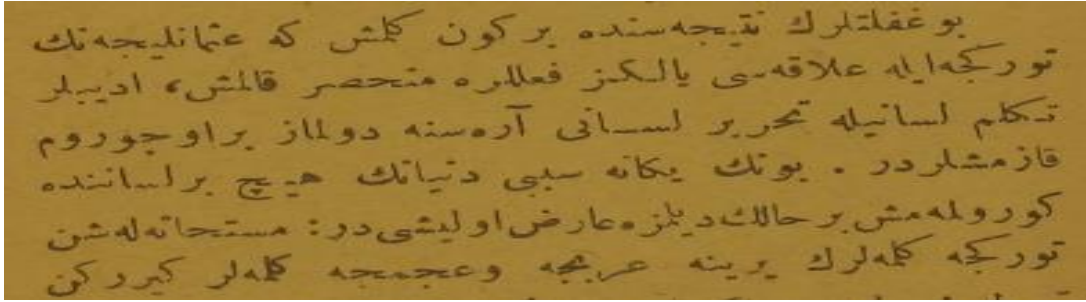 بو غفلتلرك نتيجه‌سنده بر كون كلمش كه عثمانليجه‌نك
توركجه ايله علاقه‌سى يالكز فعللره منحصر قالمش، اديبلر
تكلم لسانيله تحرير لسانى آره‌سنه دولماز بر اوجوروم
قازمشلردر. بونك يكانه سببى دنيانك هيچ بر لساننده
كورولمه‌مش بر حالك ديلمزه عارض اوليشى‌در: مستحاثه‌لشن
توركجه كلمه‌لرك يرينه عربجه وعجمجه كلمه‌لر كيرركن